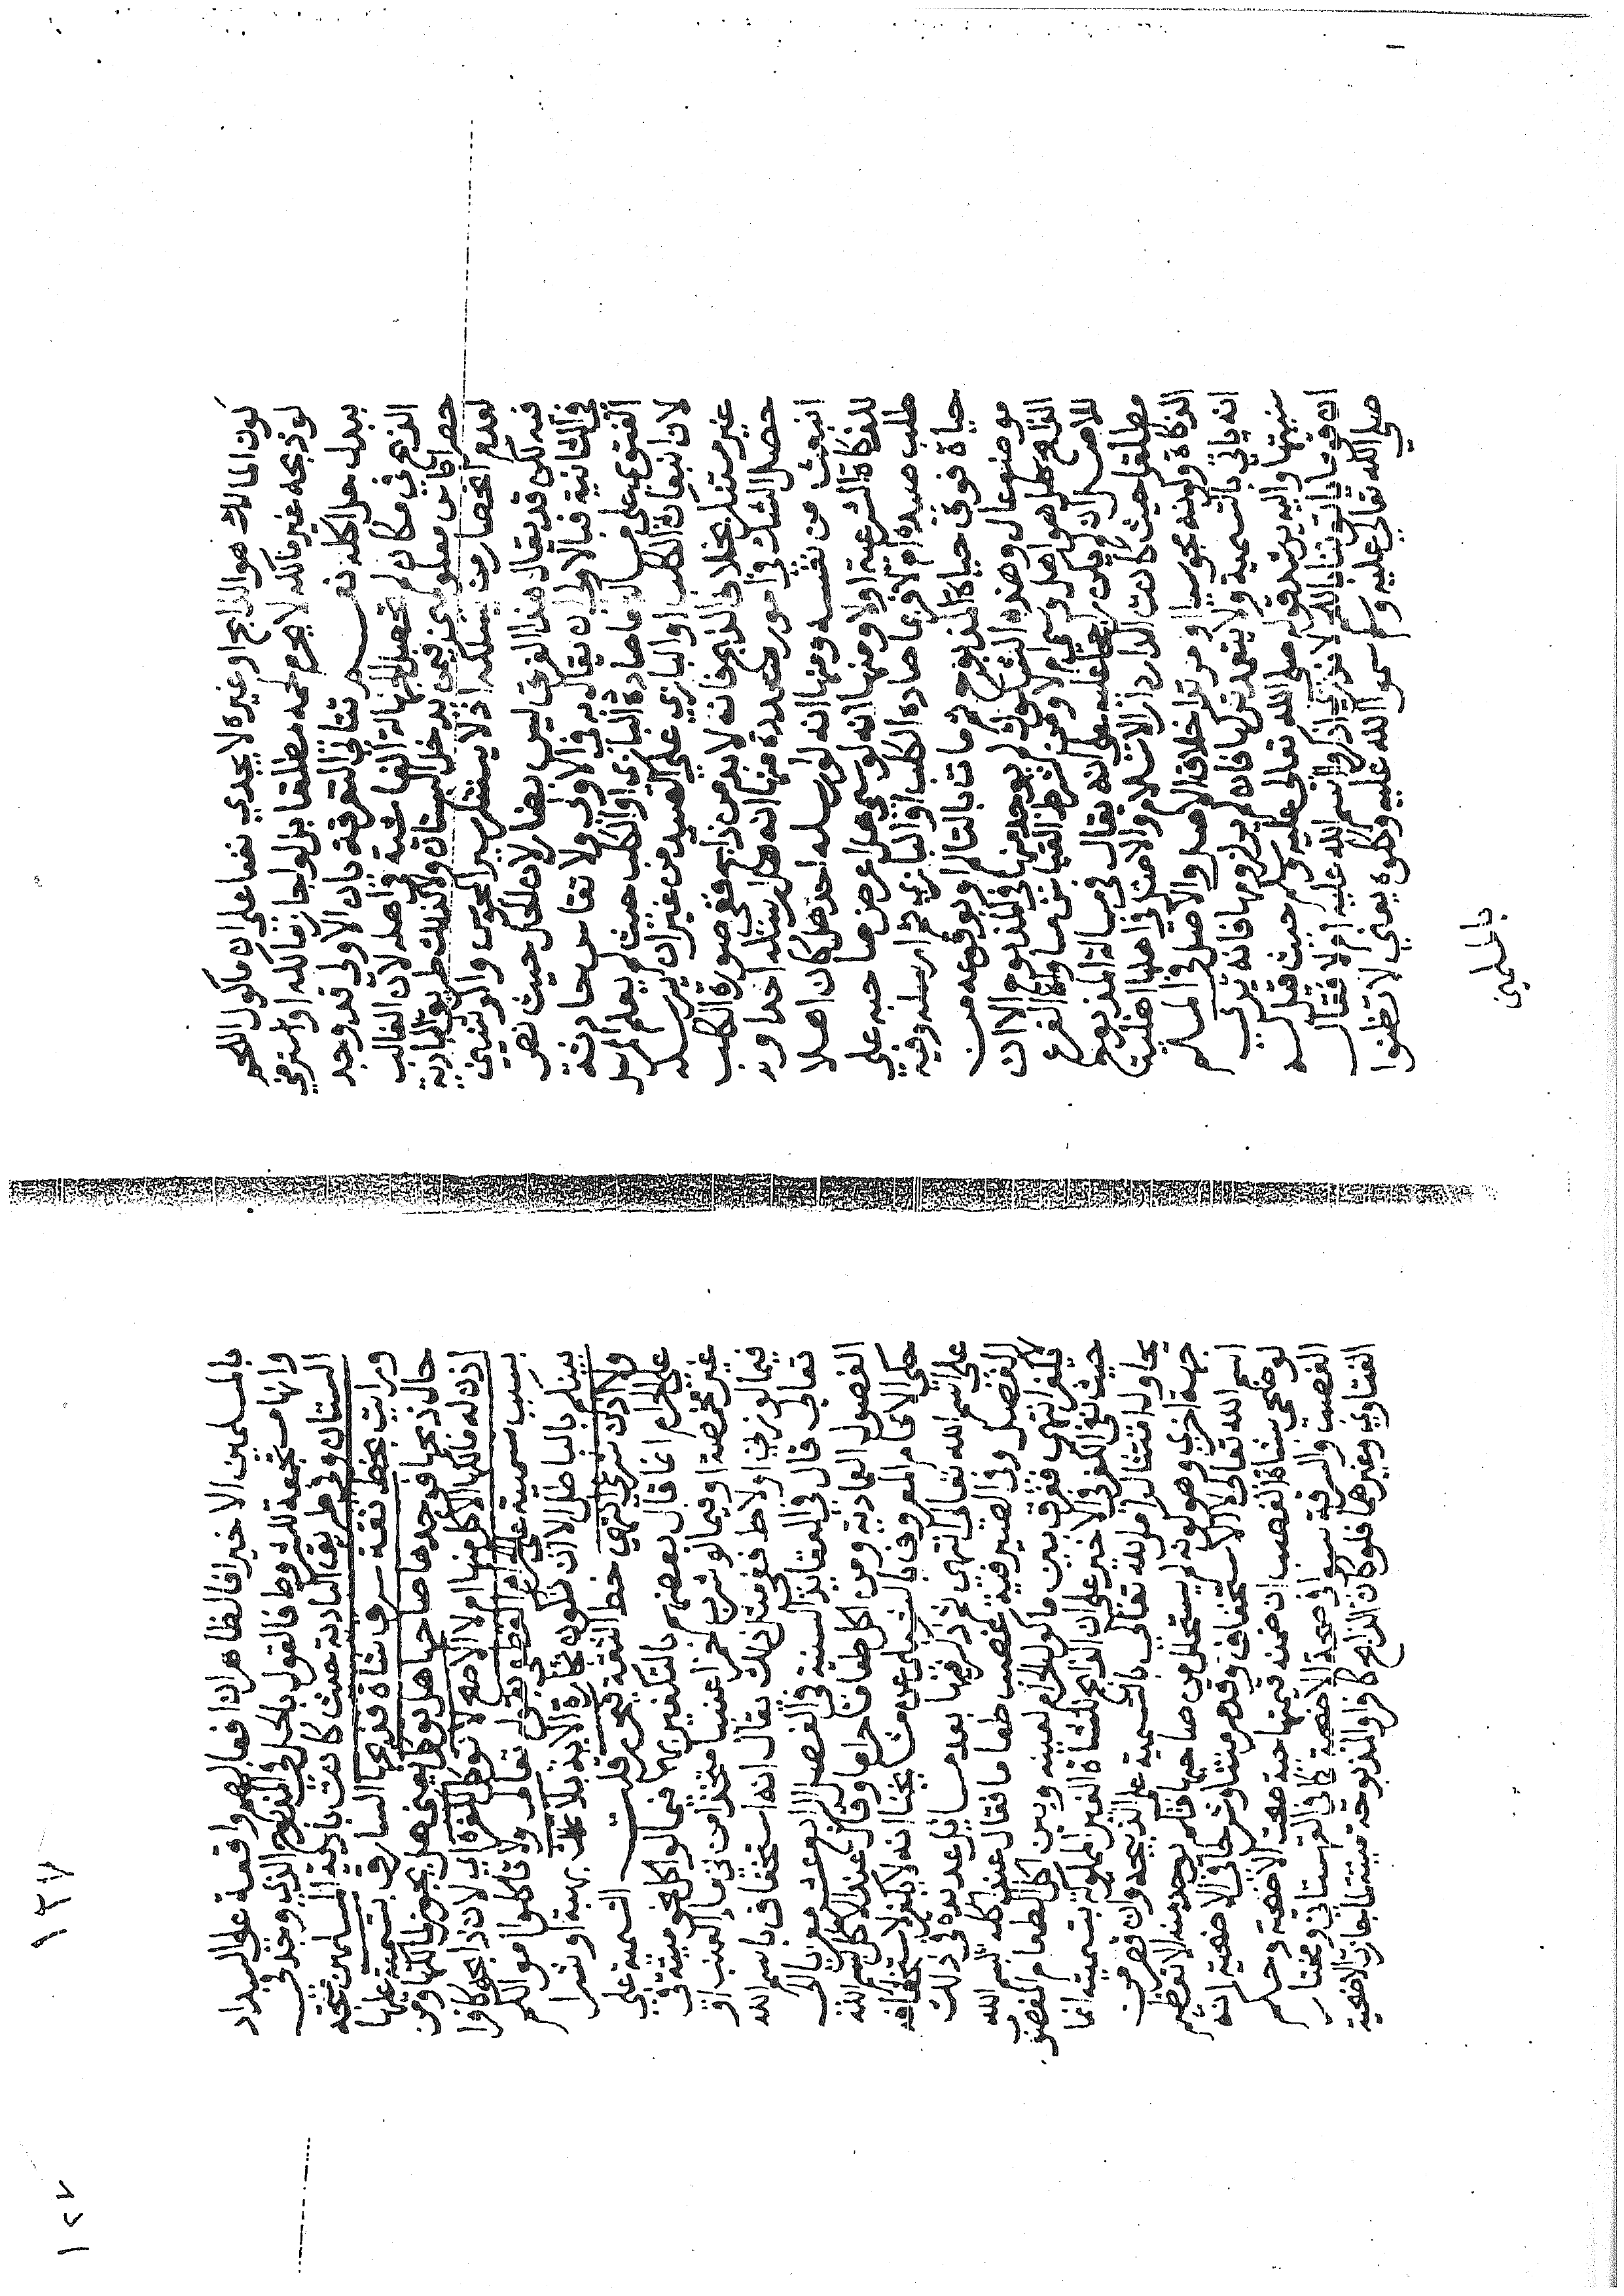 كون المالك هو الذابح او غيره لا يجدي نفعا على ان ماكول اللحم
لو ذبحه غير مالكه لا يحرم لحمه مطلقا بل لو اجاز مالكه او اشتري
ببدل حل اكله نعم تتاتي التفرقة بان الاولي قد وجد
الذبح في مكان لم تحصل الجهالة الفاشية في اهله لان الغالب
حصر اناس معلومين فيمن يدخل البستان ولا كذلك طريق البادية
لعدم انحصار من يسلكه اذ لا يستنكر سير المجوس والوثنيين
فيه لكن قد يقال هذا الفرق ليس بضار لان المحل حيث نص
في الثانية فبالاولي ان يقال به في الاولي ولا تقاس حادثة
الفتوي على مسالة ما صاده البازي او الكلب حيث لم يعلم المرسل
لان انبعاث الكلب او البازي على الصيد من غير ان يرسله
غير مستنكر بخلاف الذبح فانه لا بد من ذابح ففي صورة الكلب
حصل الشك في امور متعددة منها انه هل ارسله احد او
انبعث من نفسه ومنها انه لو ارسله احد هل كان اهلا
للذكاة الشرعية او لا ومنها انه لو سمي هل اعرض صاحبه على
طلب صيده ام لا فربما صاده الكلب او البازي ثم ارسله وفيه
حياة فوق حياة المذبوح ثم مات بالتالم او بوقوعه من
موضع عال وهذه الشكوك لم يوجد منها في المذبوح الا ان
الذابح هل هو اهل وسمي ام لا ومن شرط القياس مساواة الفرع
للاصل ان يكن راجحا عليه على انه يقال في مسالة المذبوح
مطلقا حيث كان الدار دار الاسلام والاصل في اهلها اهلية
الذكاة وكونه مجوسيا او مرتدا خلاف الاصل والاصل في المسلم
انه ياتي بالتسمية ولا يتعمد تركها فان لم يلزمها فانه ياتي
بنيتها واليه يرشد قوله صلى الله تعالى عليه وسلم حيث قيل له
ان قوما ياتوننا باللحم لا ندري اذكر اسم الله عليه ام لا فقال
صلى الله تعالى عليه وسلم سموا الله عليه وكلوه يعني لا تظنوا
بالمسلمين
١٢٧
بالمسلمين الا خيرا فالظاهر ان افعالهم واقعة على السداد
وانها مستجمعة للشروط فالقول بالحل في المذبوح الذي وجد في
البستان وفي طريق البادية حيث كانت بادية المسلمين متجه
ورايت بخط ثقة سرق شاة فذبحها السارق بتسمية عليها
حال ذبحها فوجدها صاحبها هل يوكل يعني هل يجوز لمالكها ومن
اذن له مالكها الاكل منها ام لا الاصح لا توكل لكفره اي لان ذابحها كافرا
بسبب تسميته على الحرام القطعي بقوله تعالى ولا تاكلوا اموالكم
بينكم بالباطل الا ان تكون تجارة الاية بلا تملك بهبة او شراء
ولا اذن شرعي انتهي خط الثقة قلت التسمية على
على الحرام انما قال بعضهم بالتكفير بها فيما لو اكل نحو ميتة في
غير مخمصة او فيما لو شرب خمرا عنبيا متخذا من ماء العنب او
فيما لو زني او لاط ففي مثل ذلك يقال انه استخفاف باسم الله
تعالى قال في العقايد السنية في الفصل الرابع عشر معزيا الى
الفصول العمادية ومن اكل طعاما حراما وقال عند الاكل بسم الله
حكي الامام المعروف بالشبلي عن مشايخنا انه لا يكفر لاستخفافه
على اسم الله تعالى انتهي ثم ذكر هنا بعد مسائل عديدة في ذلك
الفصل وفي الصيرفية غصب طعاما فقال عند اكله بسم الله
لا يكفر انتهي ففرق بين ماكول الحرام لعينه وبين اكل الطعام المغصوب
حيث نفي الكفر في الاخير على ان الذابح لشاة الغير المملوكة بتسميته انما
يحاول امتثال امر الله تعالى بالتسمية على الذبيحة وان قصر من
جهة اخري وهو كونه لم يستحل من صاحبها فلم يوجد منه الا تعظيم
اسم الله تعالى لا الاستخفاف وقد صرح منلا خسرو في الاضحية انه
لو ضحي بشاة الغصب ان ضمنه قيمتها حية صحت الاضحية وحكم
الغصب والسرقة سواء في صحة الاضحية كما في القهستاني ومختار
الفتاوي وغيرهما فلو كان الذابح كافرا والمذبوحة ميتة لما جازت الاضحية
١٢٧